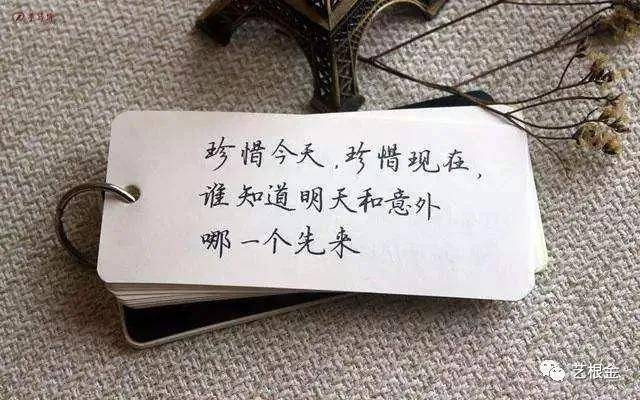 珍惜今天,珍惜现在,
谁知道明天和意外
哪一个先来
艺根金